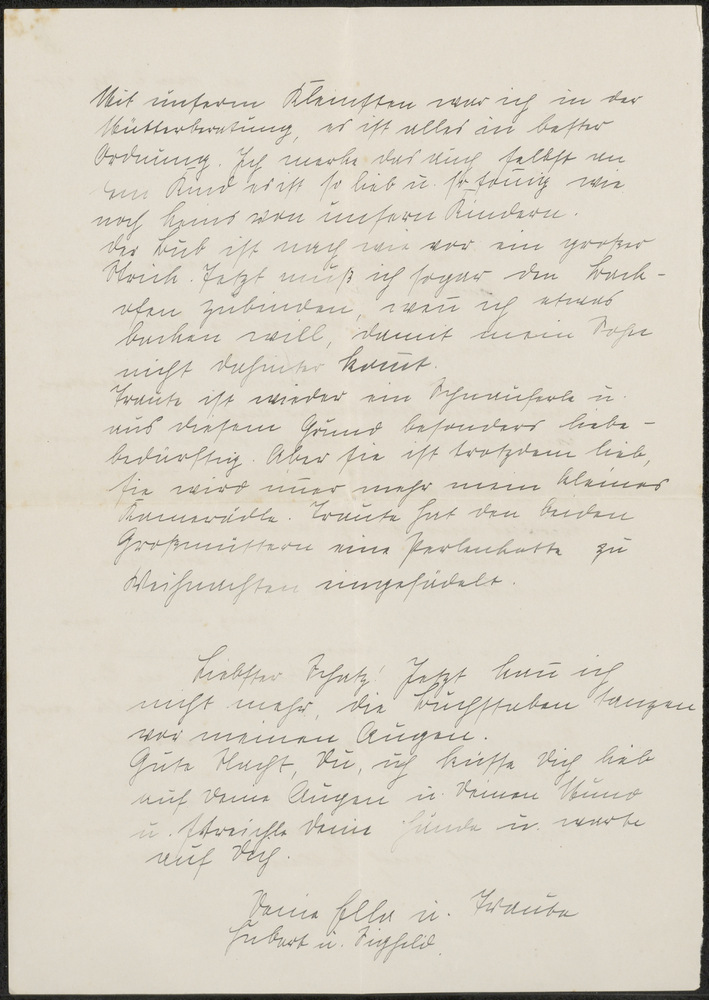 Mit unserm Kleinsten war ich in der
Mütterberatung, es ist alles in bester
Ordnung. Ich merke das auch selbst an
dem Kind es ist so lieb u. sonnig wie
noch keins von unsern Kindern.
Der Bub ist nach wie vor ein großer
Strick. Jetzt muß ich sogar den Back-
ofen zubinden, wenn ich etwas
backen will, damit mein Sohn
nicht dahinter kom̄t.
Traute ist wieder ein Schnauferle u.
aus diesem Grund besonders liebe-
bedürftig. Aber sie ist trotzdem lieb,
sie wird im̄er mehr mein kleines
Kamerädle. Traute hat den beiden
Großmüttern eine Perlenkette zu
Weihnachten eingefädelt.
Liebster Schatz! Jetzt kan̄ ich
nicht mehr, die Buchstaben tanzen
vor meinen Augen.
Gute Nacht, Du, ich küsse Dich lieb
auf Deine Augen u. Deinen Mund
u. streichle Deine Hände u. warte
auf Dich.
Deine Ella u. Traute
Hubert u. Sigfrid.